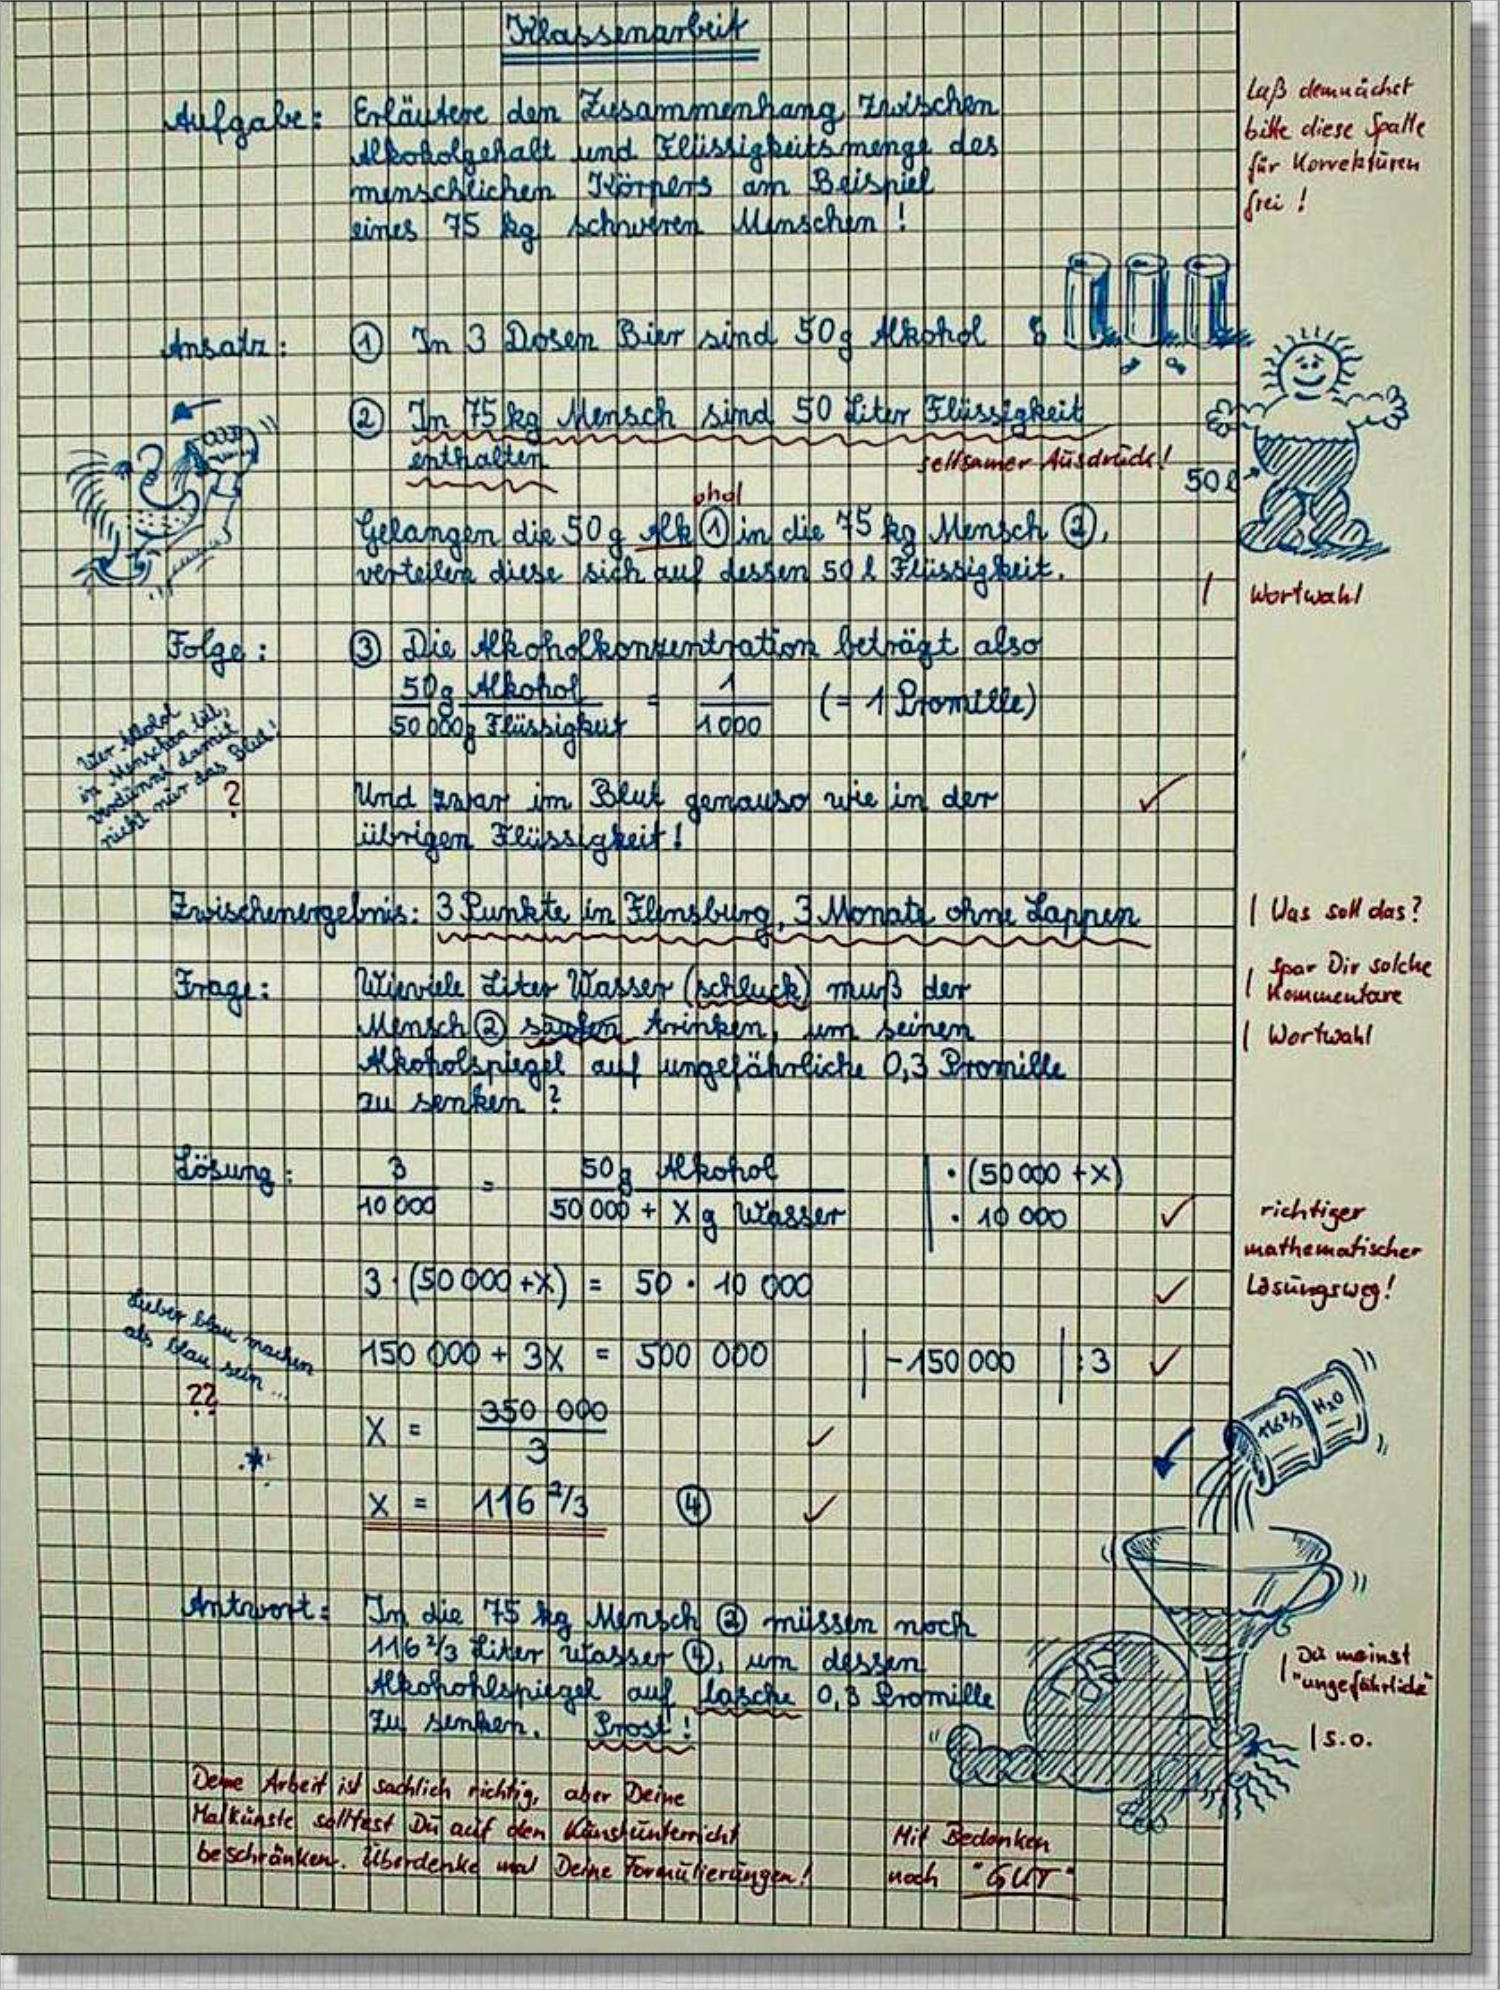 Klassenarbeit
Laß demnächst
bitte diese Spalte
für Korrekturen
frei !
Aufgabe: Erläutere den Zusammenhang zwischen
Alkoholgehalt und Flüssigkeitsmenge des
menschlichen Körpers am Beispiel
eines 75 kg schweren Menschen !
Ansatz: ① In 3 Dosen Bier sind 50g Alkohol
② In 75 kg Mensch sind 50 Liter Flüssigkeit
enthalten
seltsamer Ausdruck!
50 l
ohol
Gelangen die 50 g Alk ① in die 75 kg Mensch ②,
verteilen diese sich auf dessen 50 l Flüssigkeit.
| Wortwahl
Folge: ③ Die Alkoholkonzentration beträgt also
50g Alkohol / 50 000g Flüssigkeit = 1 / 1000 (= 1 Promille)
Wer Alkohol
in Menschen tut,
verdünnt damit
nicht nur das Blut!
?
Und zwar im Blut genauso wie in der ✓
übrigen Flüssigkeit!
Zwischenergebnis: 3 Punkte in Flensburg, 3 Monate ohne Lappen
| Was soll das?
Frage: Wieviele Liter Wasser (schluck) muß der
| Spar Dir solche
Kommentare
Mensch ② saufen trinken, um seinen
| Wortwahl
Alkoholspiegel auf ungefährliche 0,3 Promille
zu senken ?
Lösung: 3 / 10 000 = 50g Alkohol / 50 000 + X g Wasser | · (50 000 + X)
| · 10 000 ✓
richtiger
mathematischer
Lösungsweg!
3 · (50 000 + X) = 50 · 10 000 ✓
Lieber blau machen
als blau sein ...
??
150 000 + 3X = 500 000 | - 150 000 | : 3 ✓
X = 350 000 / 3 ✓
X = 116 2/3 ④ ✓
116 2/3 H₂O
Antwort: In die 75 kg Mensch ② müssen noch
116 2/3 Liter Wasser ④, um dessen
Alkohohlspiegel auf lasche 0,3 Promille
zu senken. Prost !
| Du meinst
"ungefährliche"
| s.o.
Deine Arbeit ist sachlich richtig, aber Deine
Malkünste solltest Du auf den Kunstunterricht
beschränken. Überdenke mal Deine Formulierungen!
Mit Bedenken
noch "GUT"